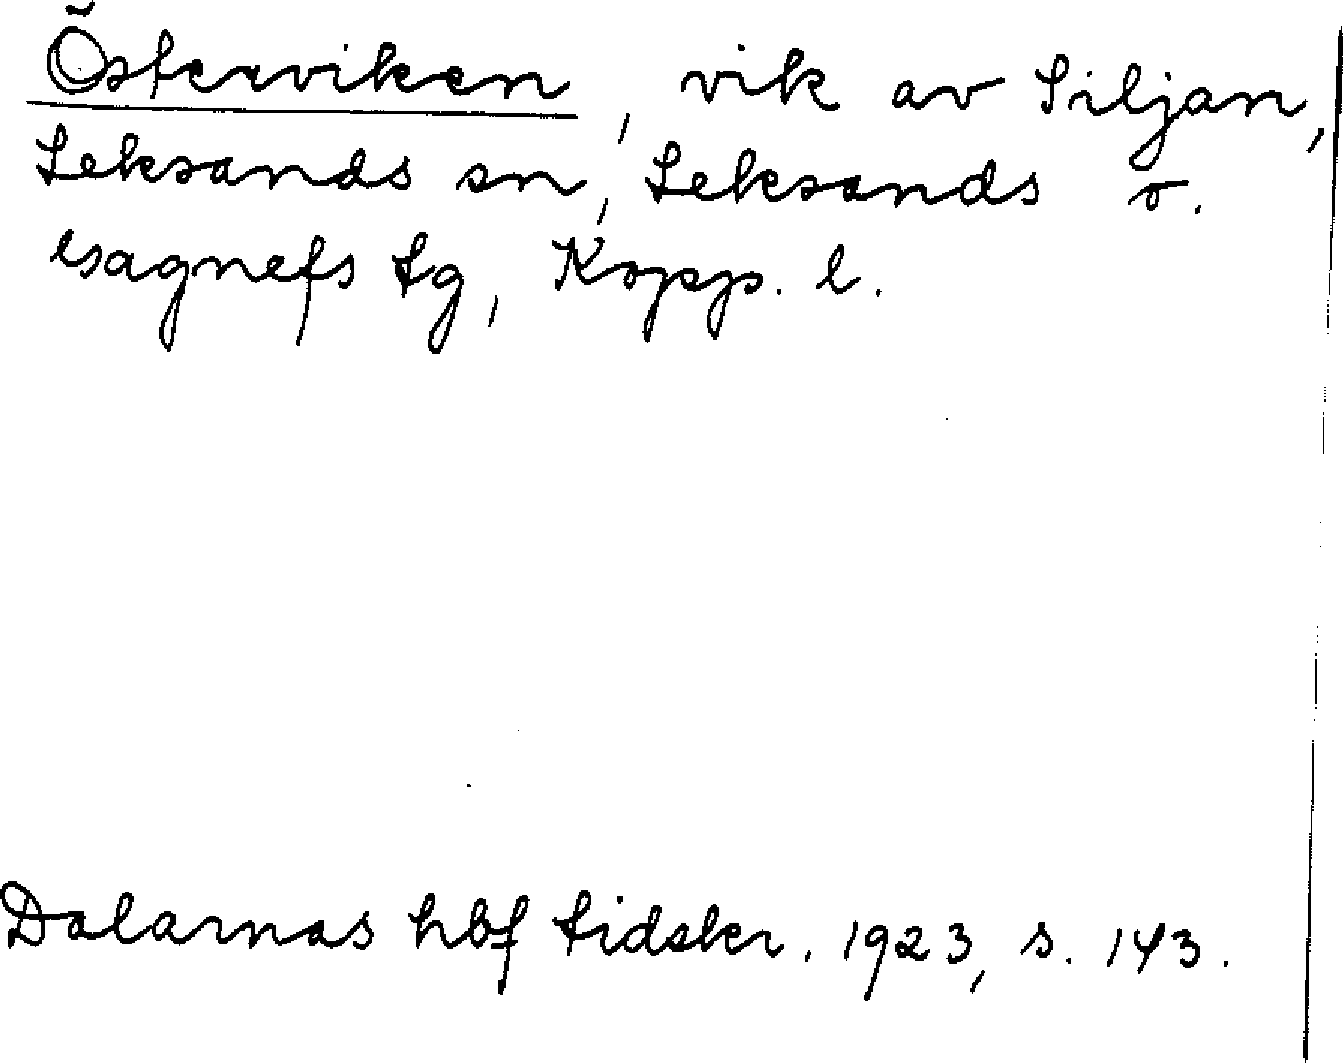 Österviken, vik av Siljan,
Leksands sn, Leksands o.
Gagnefs tg, Kopp. l.
Dalarnas hbf tidskr. 1923, s. 143.